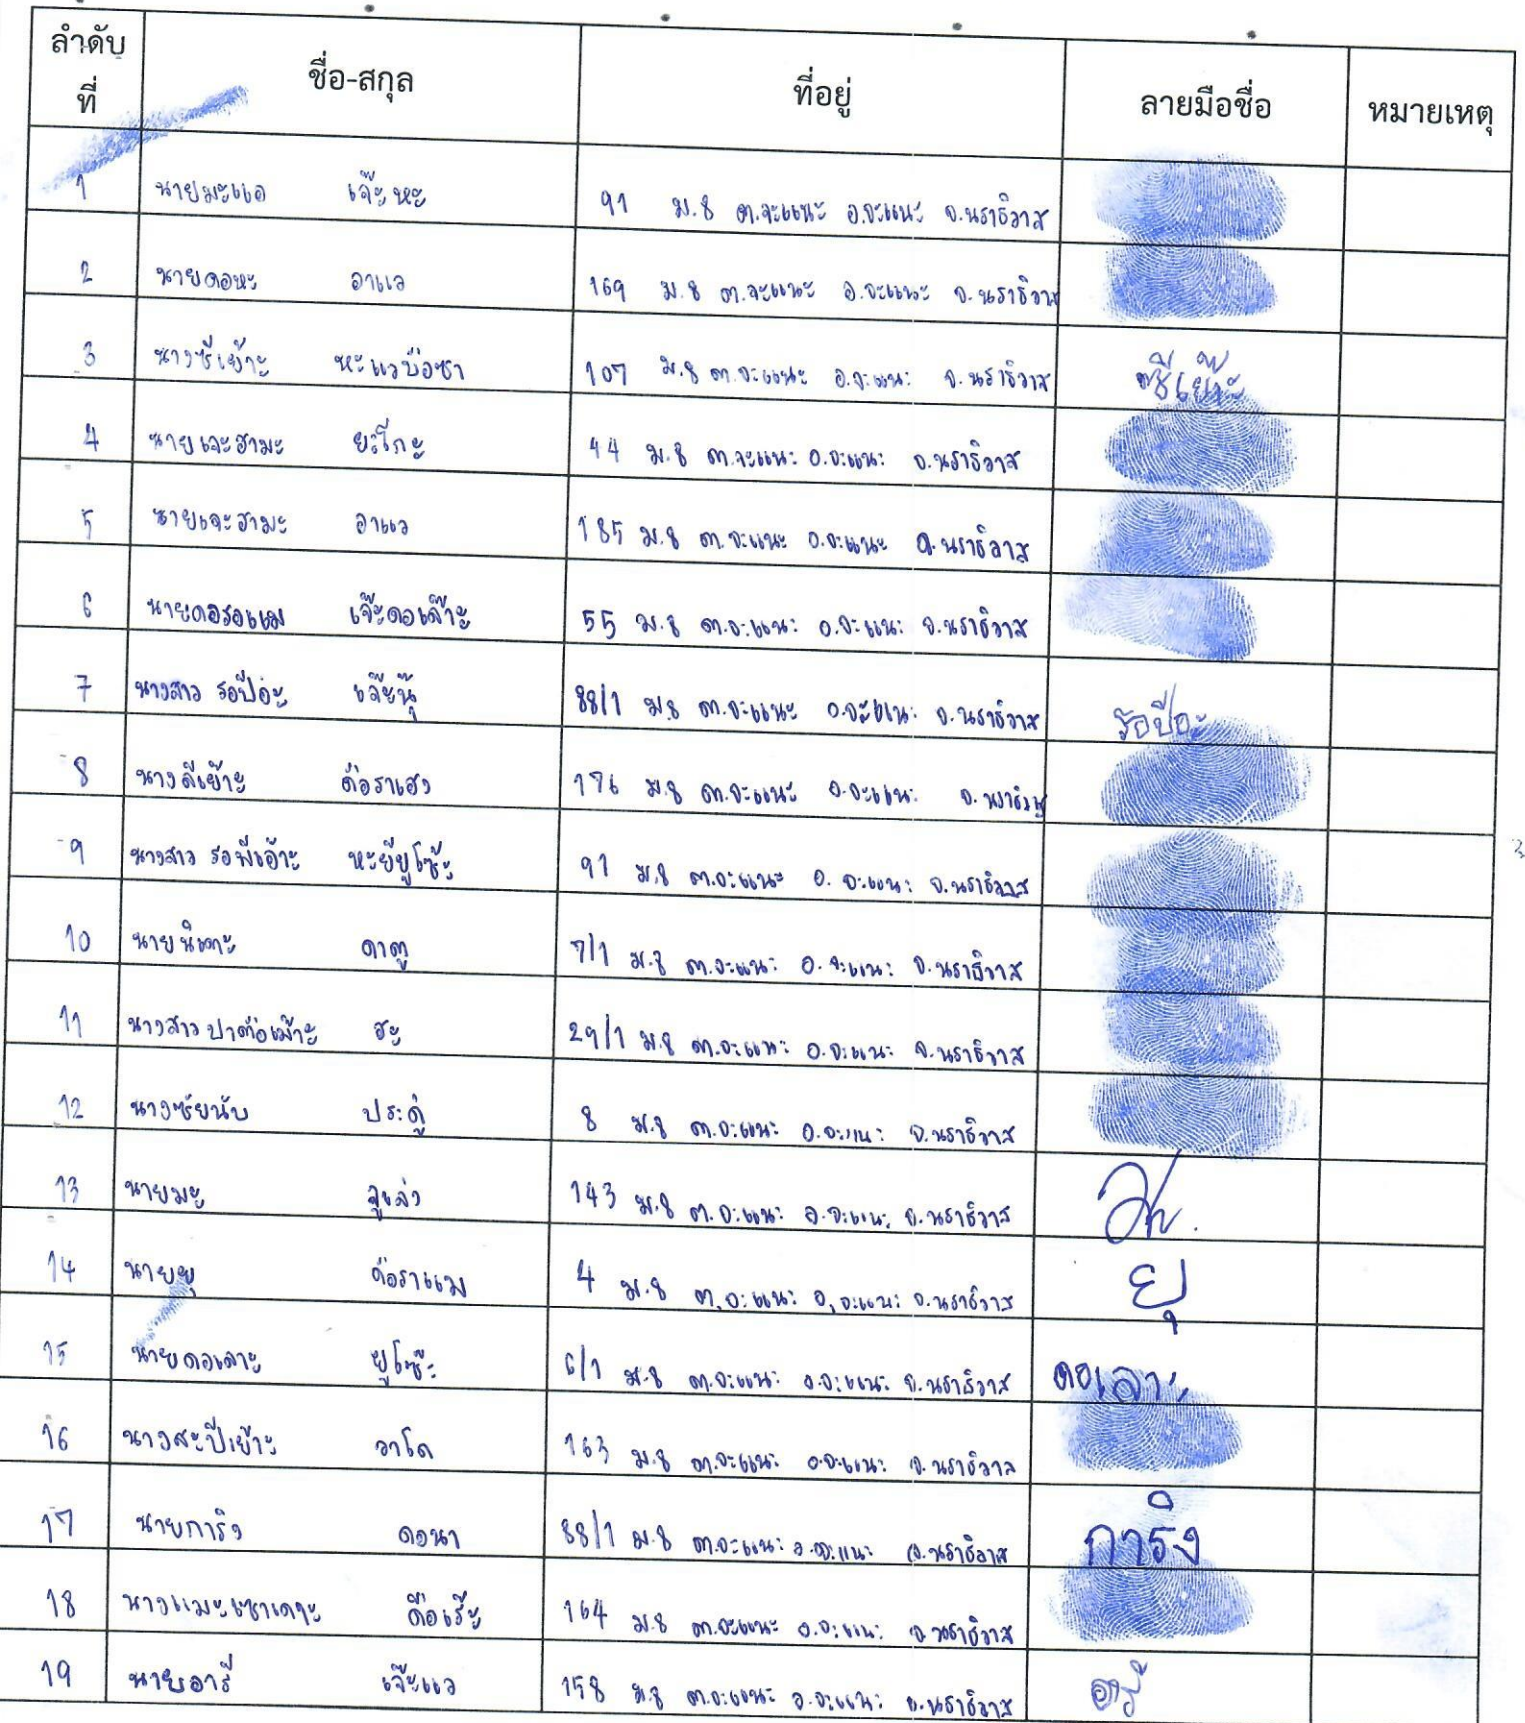 ลำดับที่ ชื่อ-สกุล ที่อยู่ ลายมือชื่อ หมายเหตุ
1 นายมะแอ เจ๊ะหะ 91 ม.8 ต.จะแนะ อ.จะแนะ จ.นราธิวาส
2 นายดอหะ อาแว 169 ม.8 ต.จะแนะ อ.จะแนะ จ.นราธิวาส
3 นางซีเย๊าะ หะแวบือซา 107 ม.8 ต.จะแนะ อ.จะแนะ จ.นราธิวาส ซีเย๊าะ
4 นายเจะฮามะ ยะโกะ 44 ม.8 ต.จะแนะ อ.จะแนะ จ.นราธิวาส
5 นายเจะฮามะ อาแว 185 ม.8 ต.จะแนะ อ.จะแนะ จ.นราธิวาส
6 นายดอรอแม เจ๊ะดอเล๊าะ 55 ม.8 ต.จะแนะ อ.จะแนะ จ.นราธิวาส
7 นางสาว รอปีอะ เจ๊ะนุ๊ 88/1 ม.8 ต.จะแนะ อ.จะแนะ จ.นราธิวาส รอปีอะ
8 นางดีเย๊าะ ดือราแฮง 176 ม.8 ต.จะแนะ อ.จะแนะ จ.นราธิวาส
9 นางสาว หะยียูโซ๊ะ 91 ม.8 ต.จะแนะ อ.จะแนะ จ.นราธิวาส
10 นายนิเกาะ ดาตู 7/1 ม.8 ต.จะแนะ อ.จะแนะ จ.นราธิวาส
11 นางสาว ปาตือเม๊าะ ฮะ 29/1 ม.8 ต.จะแนะ อ.จะแนะ จ.นราธิวาส
12 นางซัยนับ ประดู่ 8 ม.8 ต.จะแนะ อ.จะแนะ จ.นราธิวาส
13 นายมะ 143 ม.8 ต.จะแนะ อ.จะแนะ จ.นราธิวาส
14 นายยุ ดือราแม 4 ม.8 ต.จะแนะ อ.จะแนะ จ.นราธิวาส ยุ
15 นายดอเลาะ ยูโซ๊ะ 6/1 ม.8 ต.จะแนะ อ.จะแนะ จ.นราธิวาส ดอเลาะ
16 นางสะปีเย๊าะ วาโด 163 ม.8 ต.จะแนะ อ.จะแนะ จ.นราธิวาส
17 นายการิง ดอนา 88/1 ม.8 ต.จะแนะ อ.จะแนะ จ.นราธิวาส การิง
18 ดือเร๊ะ 164 ม.8 ต.จะแนะ อ.จะแนะ จ.นราธิวาส
19 นายอารี เจ๊ะแว 158 ม.8 ต.จะแนะ อ.จะแนะ จ.นราธิวาส อารี